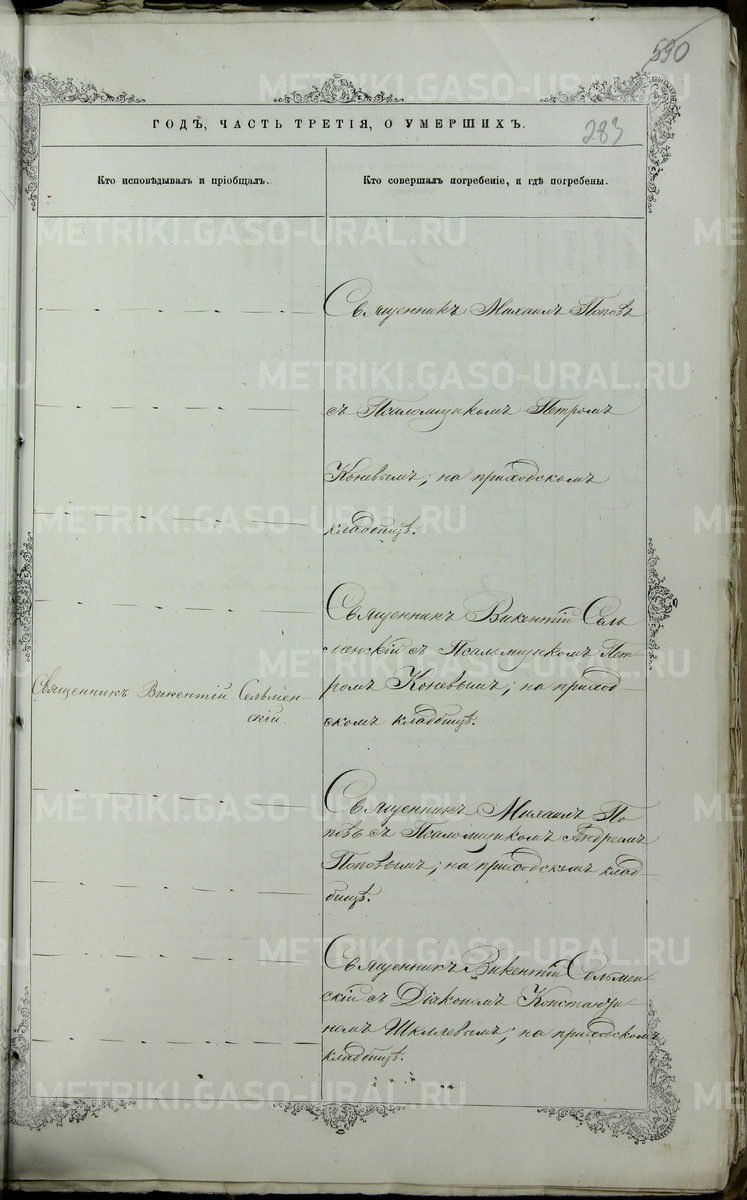 590
ГОДЪ, ЧАСТЬ ТРЕТІЯ, О УМЕРШИХЪ.
283
Кто исповѣдывалъ и пріобщалъ.
Кто совершалъ погребеніе, и гдѣ погребены.
Священникъ Михаилъ Поповъ
съ Псаломщикомъ Петромъ
Коневымъ; на приходскомъ
кладбищѣ.
Священникъ Викентій Сель-
менскій съ Псаломщикомъ Пет-
ромъ Коневымъ; на приход-
скомъ кладбищѣ.
Священникъ Викентій Сельмен-
скій.
Священникъ Михаилъ По-
повъ съ Псаломщикомъ Андреемъ
Поповымъ; на приходскомъ клад-
бищѣ.
Священникъ Викентій Сельмен-
скій съ Діакономъ Константи-
номъ Шкляевымъ; на приходскомъ
кладбищѣ.
METRIKI.GASO-URAL.RU